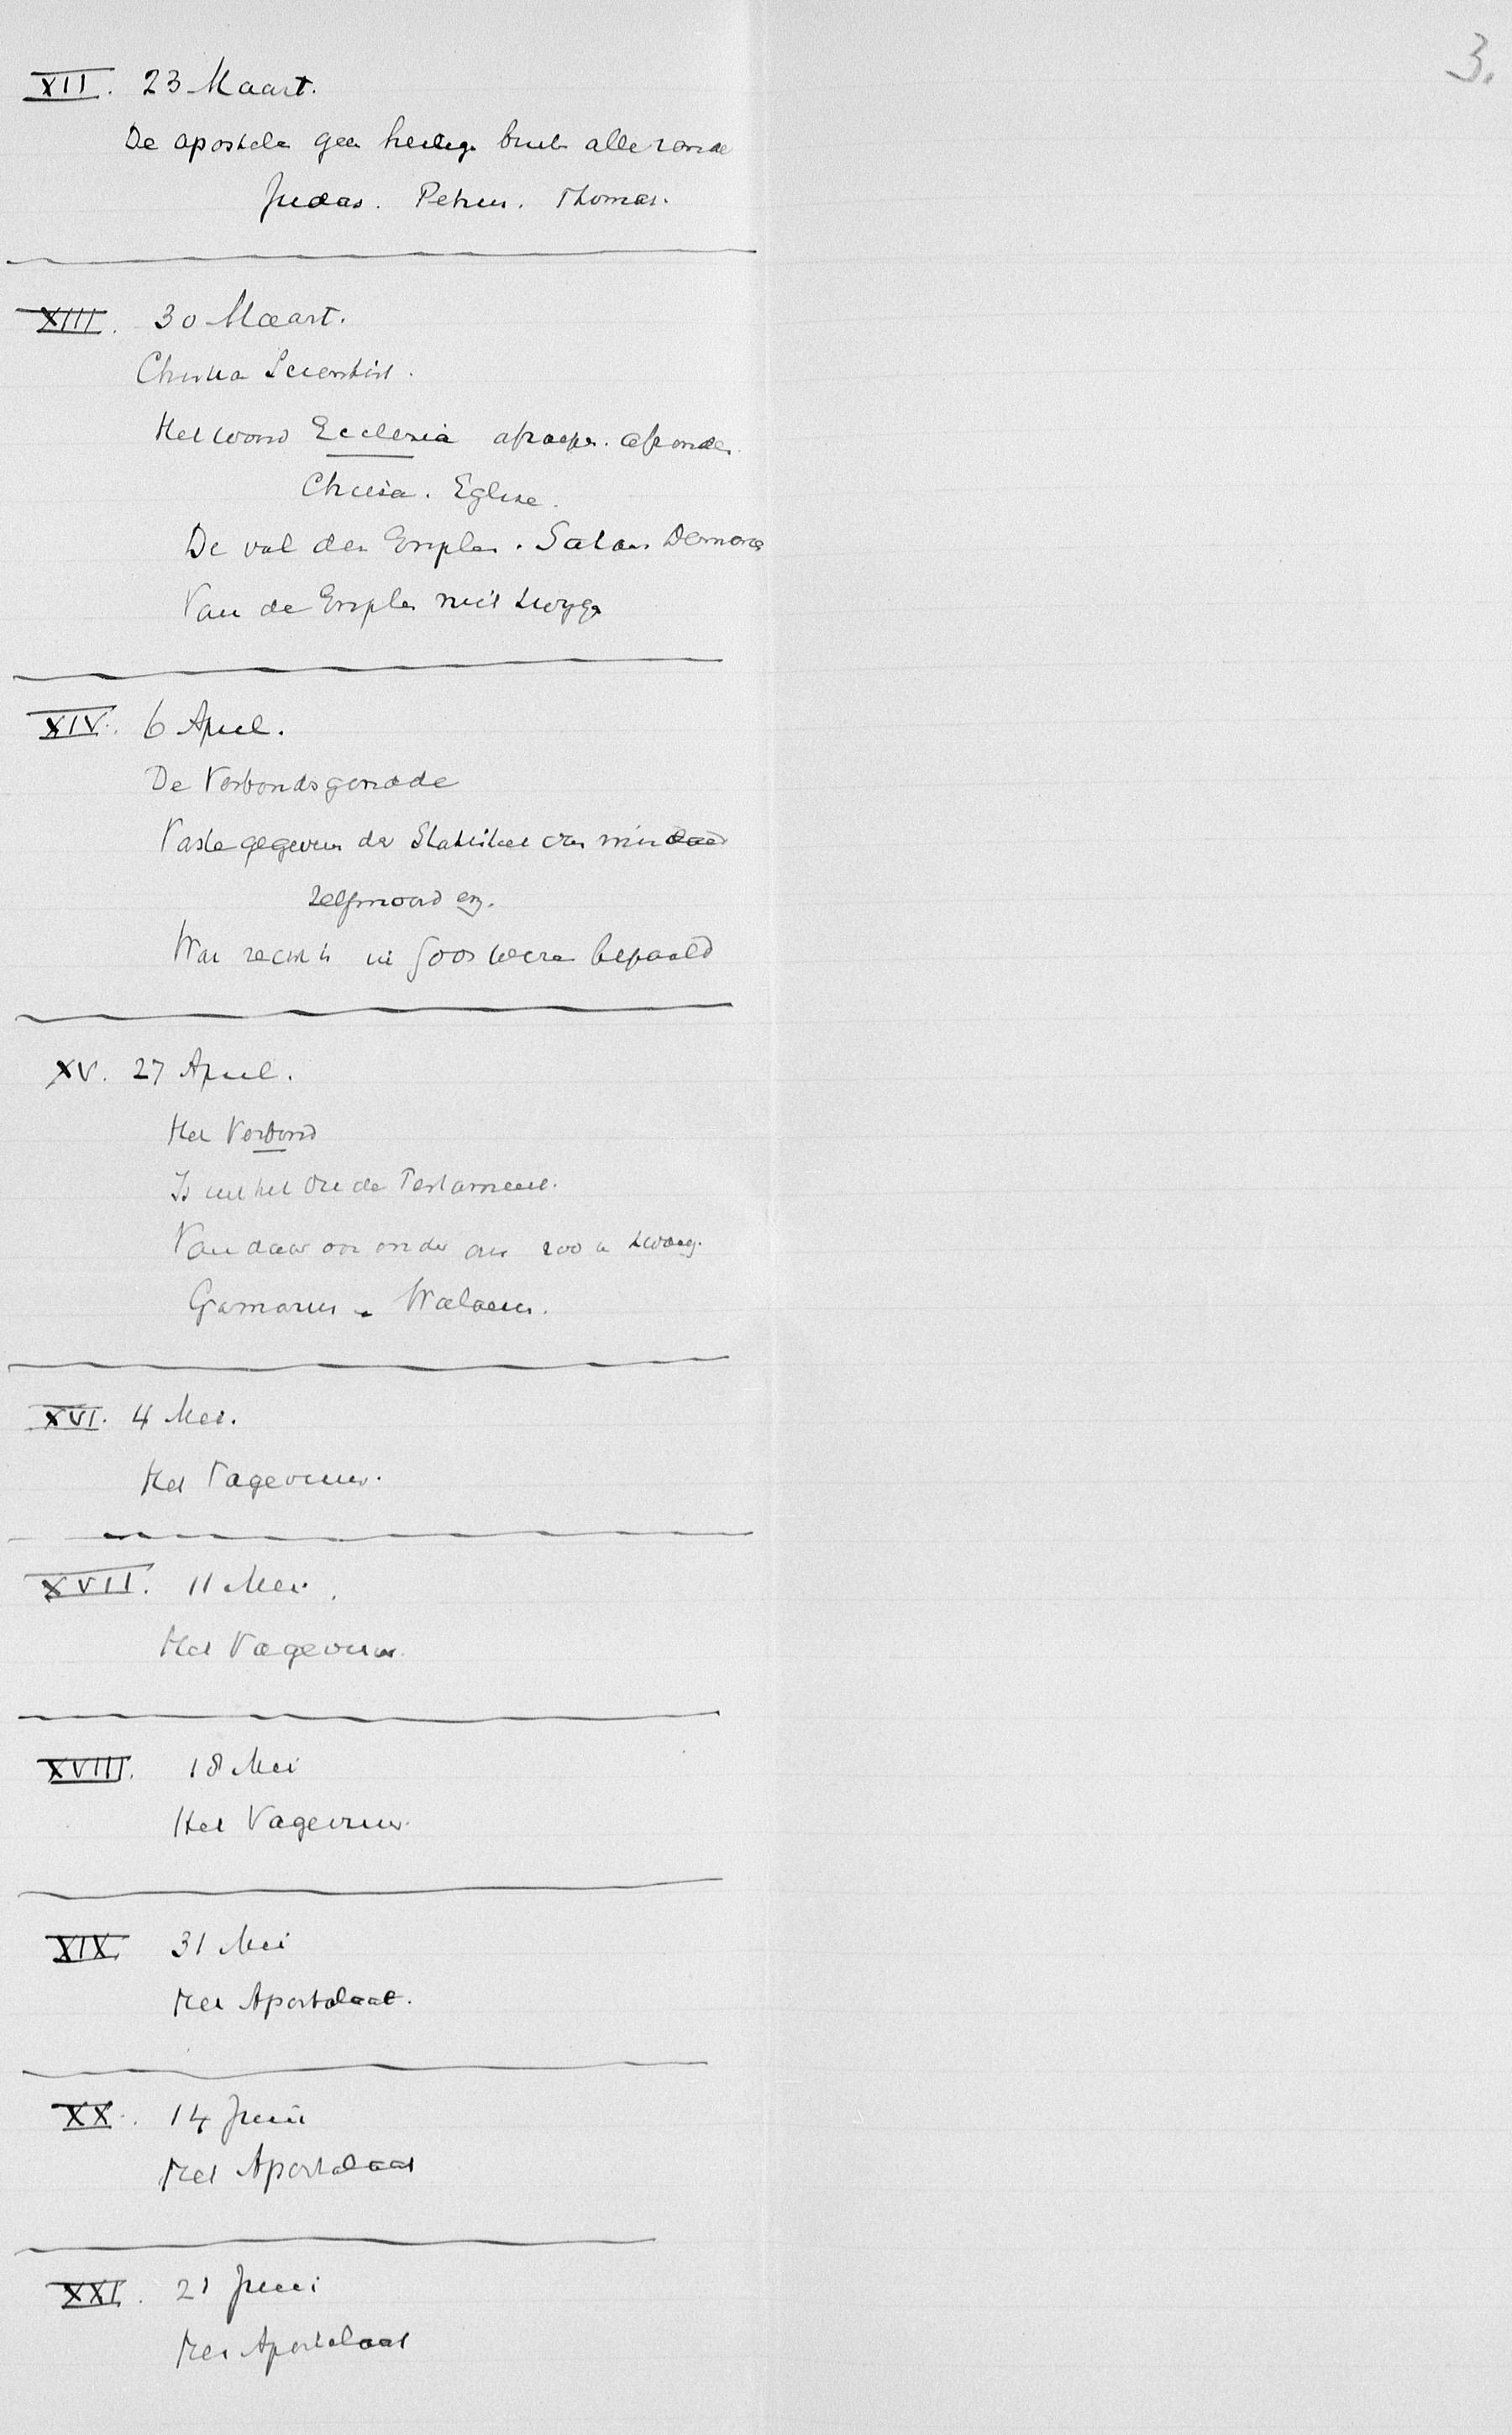 3.
XII. 23 Maart.
De apostelen geen heilige buiten alle zonde
Judas. Petrus. Thomas.
XIII. 30 Maart.
Christian Scientist.
Het woord Ecclesia
Chiesa. Eglise.
De val der Engelen. Satan. Demonen
Van de Engelen niet
XIV. 6 April.
De Verbondsgenade
Vaste gegevens der Statistiek van misdaad
zelfmoord enz.
Wat recht is in Gods wezen bepaald
XV. 27 April.
Het Verbond
Is uit het Oude Testament.
Van daar ook onder ons zoo
Gomarus. Walaeus.
XVI. 4 Mei.
Het Vagevuur.
XVII. 11 Mei.
Het Vagevuur.
XVIII. 18 Mei
Het Vagevuur.
XIX 31 Mei
Het Apostolaat.
XX. 14 Juni
Het Apostolaat
XXI. 21 Juni
Het Apostolaat